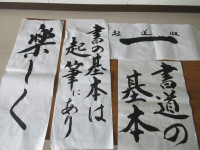 起 送 収
一
書道の
基本
書の基本は
起筆にあり
楽しく